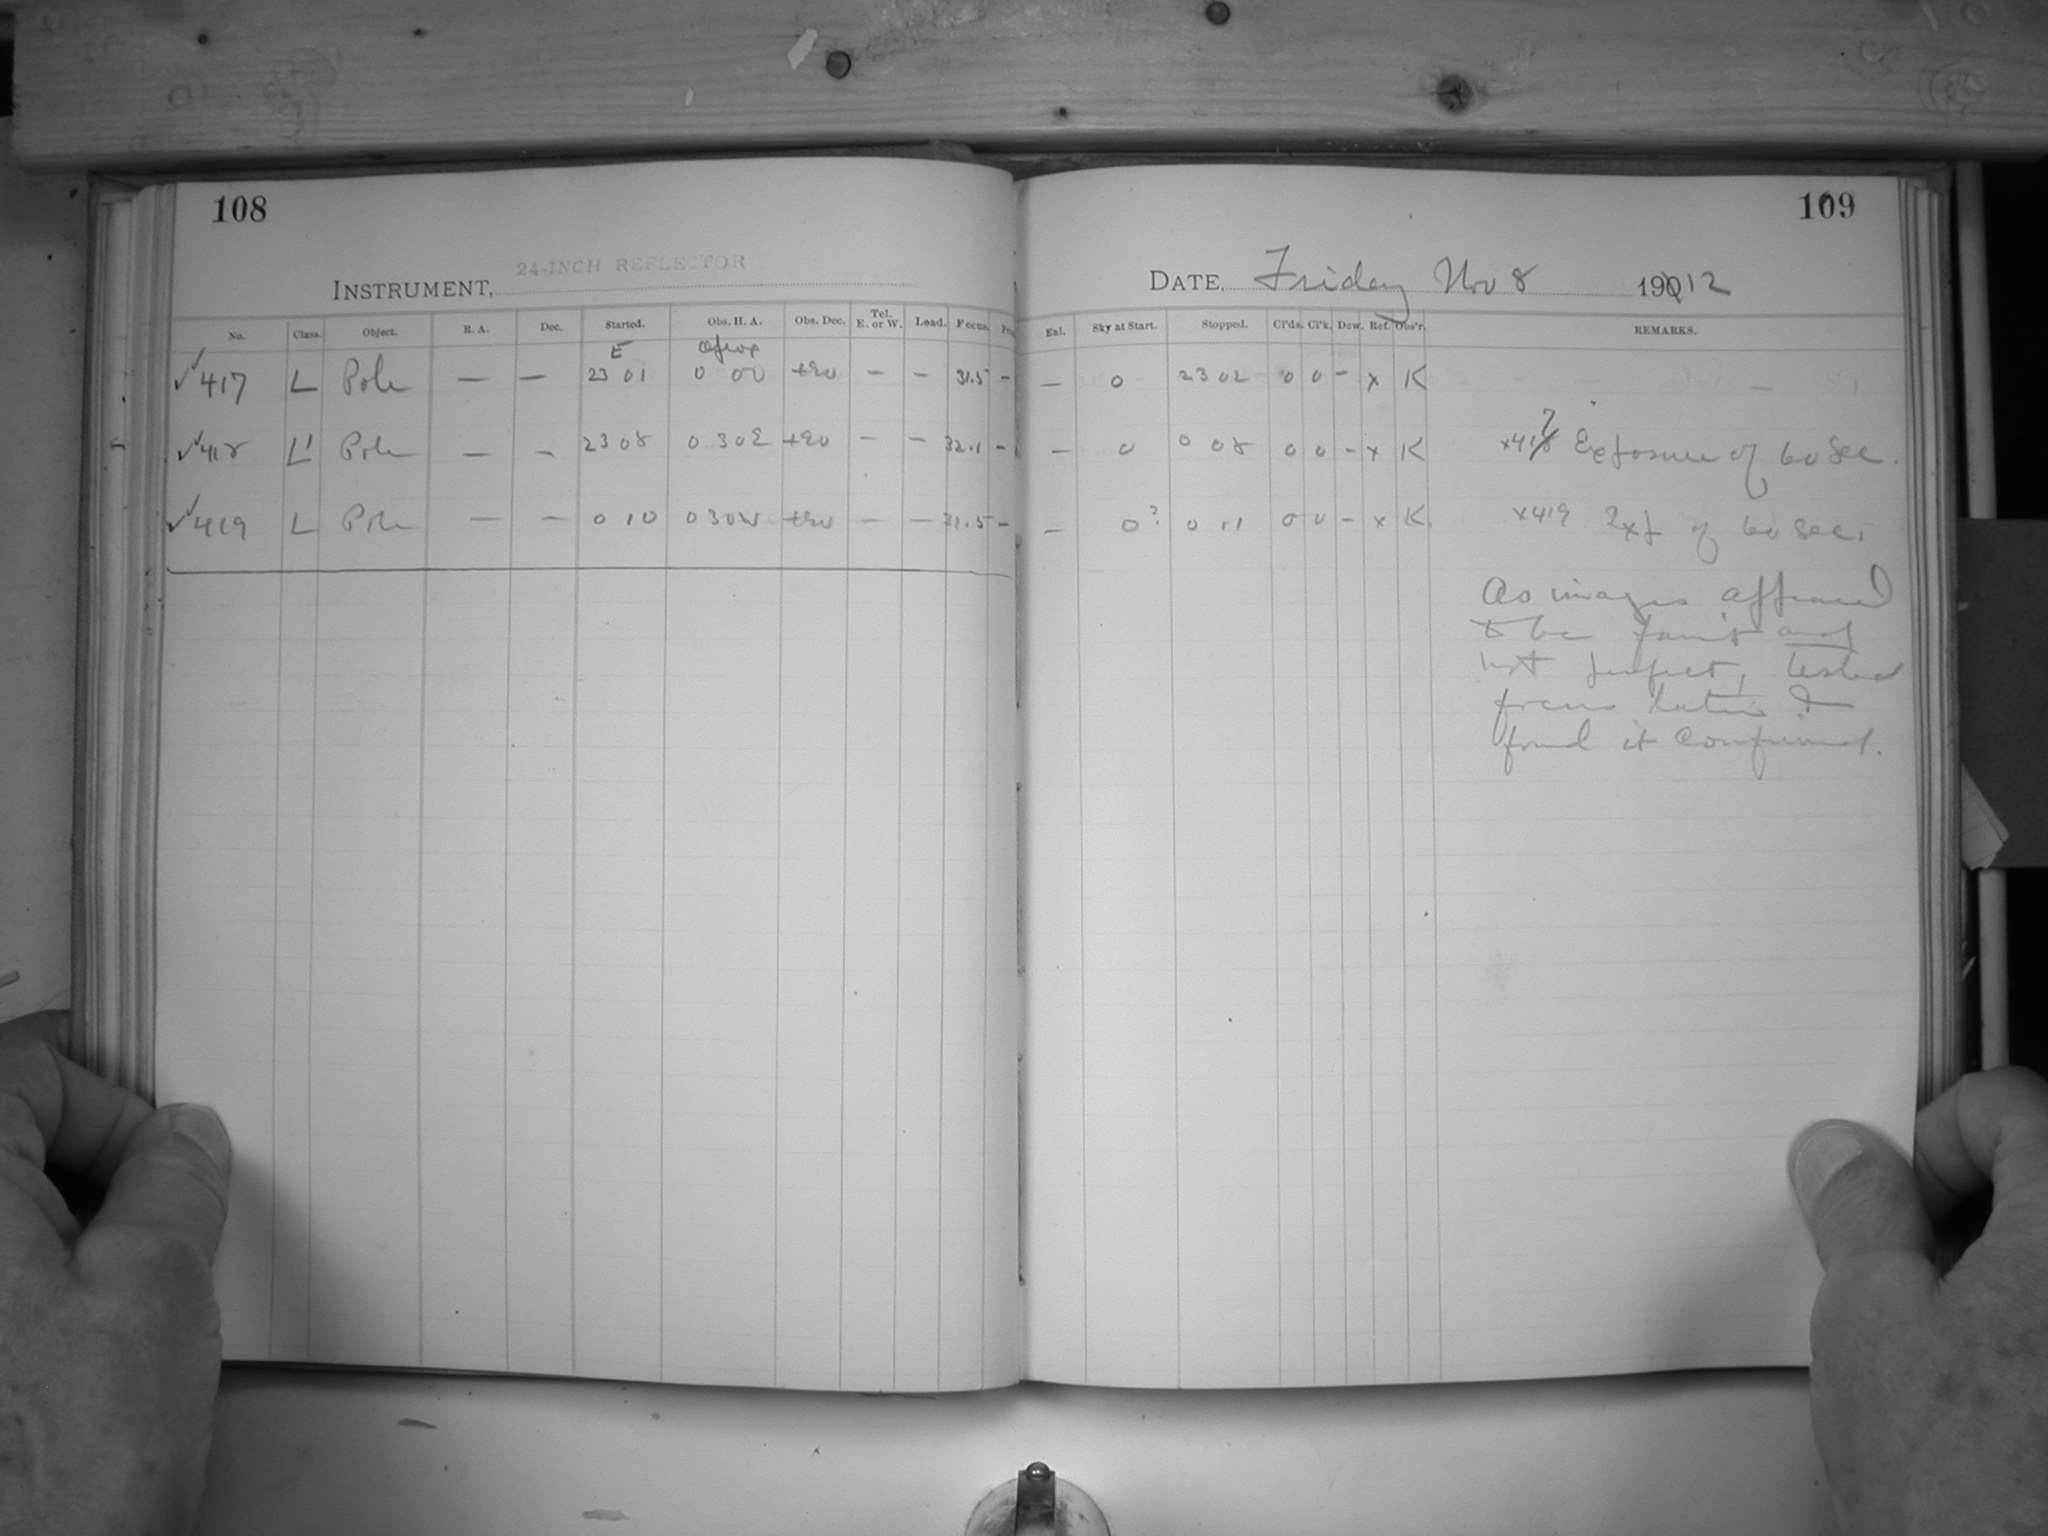 108
109
24-INCH REFLECTOR
INSTRUMENT,
DATE, Friday Nov 8 1912
No. Class. Object. R. A. Dec. Started. Obs. H. A. Obs. Dec. Tel. E. or W. Load. Focus. Eal. Sky at Start. Stopped. Cl'ds. Cl'k. Dew. Ref. Obs'r. REMARKS.
E
✓ 417 L Pole — — 23 01 0 00 +90 — — 31.5 — — 0 23 02 0 0 - x K
✓ 418 L' Pole — — 23 08 0 30 E +90 — — 32.1 - — 0 0 08 0 0 - x K x417 Exposure of 60 Sec.
✓ 419 L Pole — — 0 10 0 30 W +90 — — 31.5 - — 0? 0 11 0 0 - x K x419 Exp of 60 Sec.
As images appeared
to be faint and
not perfect, tested
focus later &
found it confirmed.